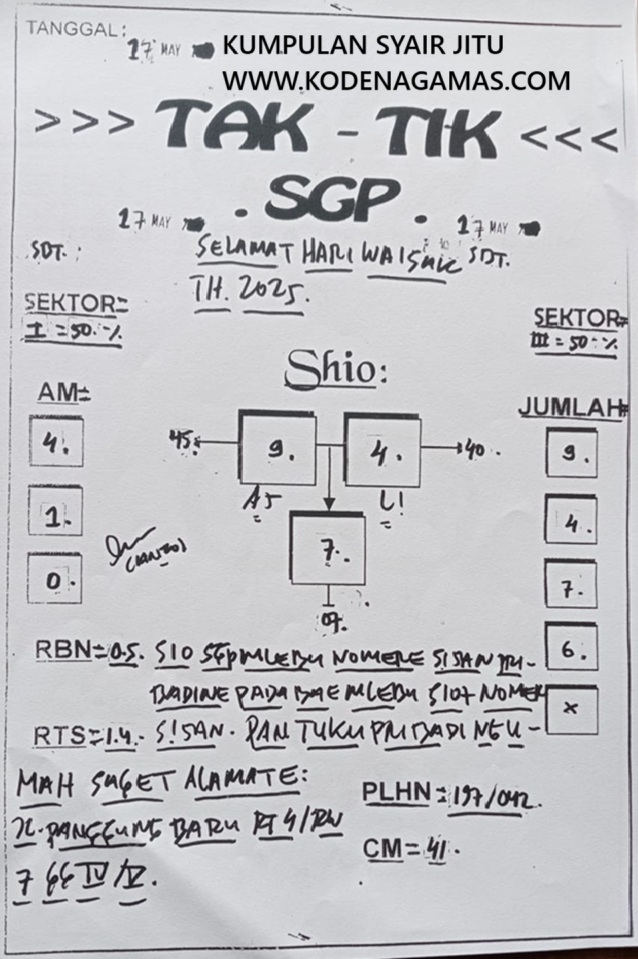 TANGGAL:
17 MAY
KUMPULAN SYAIR JITU
WWW.KODENAGAMAS.COM
>>> TAK - TIK <<<
. SGP .
17 MAY
17 MAY
SDT. :
SELAMAT HARI WAISAK SDT.
TH. 2025.
SEKTOR=
I = 50 %
SEKTOR=
III = 50 %
Shio:
AM=
JUMLAH=
4.
1.
0.
45
9.
4.
40.
A5
L!
7.
07.
9.
4.
7.
6.
x
RBN= 0.5. SIO SGP MLEBU NOMERE SISAN PRI-
BADINE PADA BAE MLEBU SIO+ NOMER
RTS= 1.4. SISAN. PAN TUKU PRIBADI NEU-
MAH SUGET ALAMATE:
JL. PANGGUNG BARU RT 4/RW
7 GG IV/V.
PLHN= 197/042.
CM= 41.